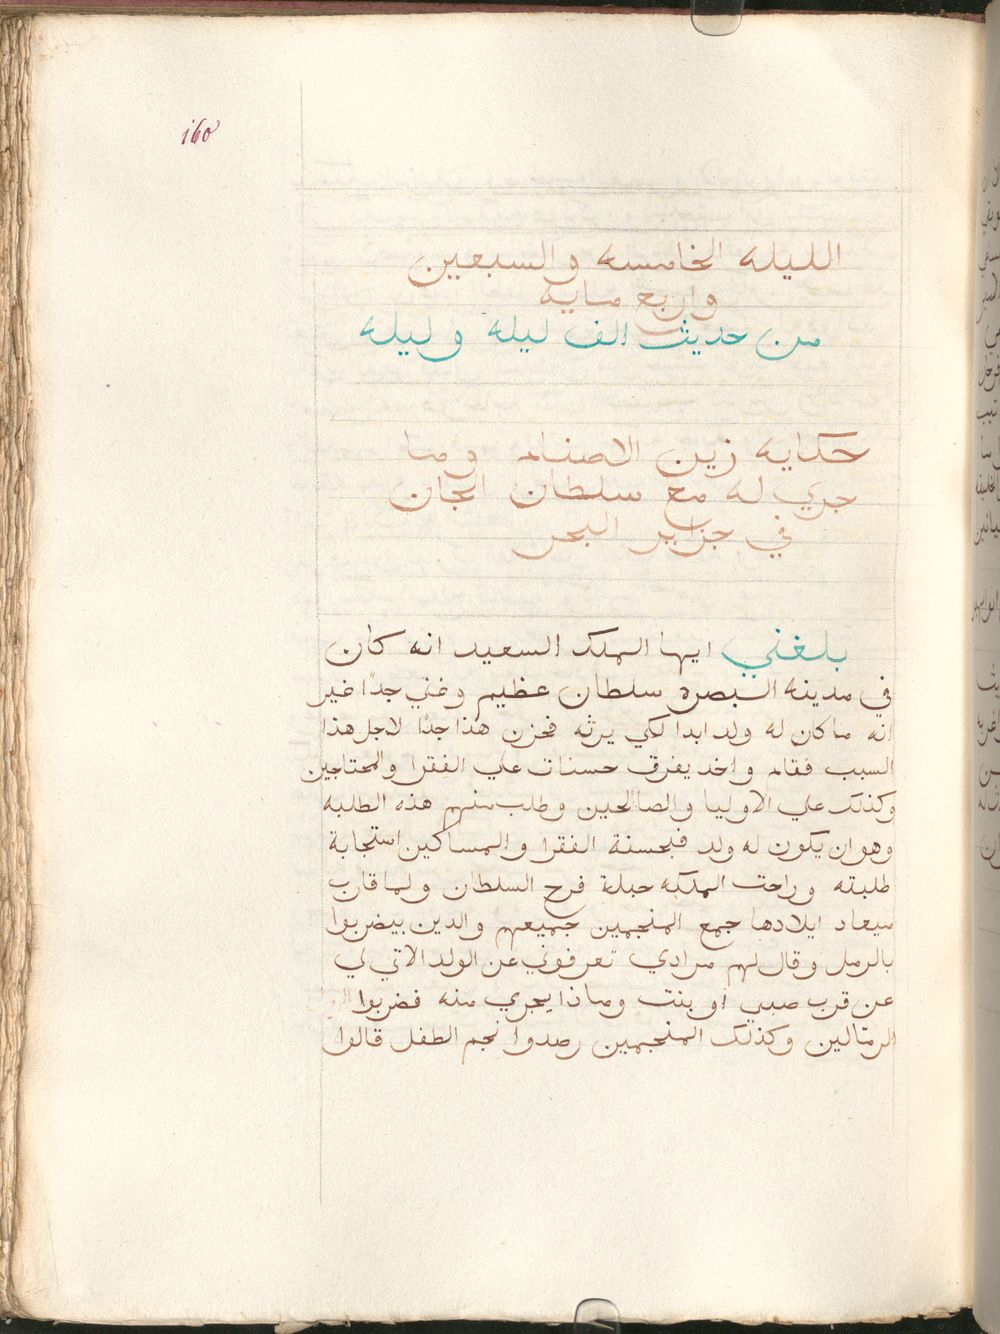 160
الليله الخامسه والسبعين
واربع مايه
من حديث الف ليله وليله
حكايه زين الاصنام وما
جري له مع سلطان الجان
في جزاير البحر
بلغني ايها الملك السعيد انه كان
في مدينه البصره سلطان عظيم وغني جدًا غير
انه ما كان له ولد ابدا لكي يرثه فحزن هذا جدًا لاجل هذا
السبب فقام واخد يفرق حسنات علي الفقرا والمحتاجين
وكذلك علي الاوليا والصالحين وطلب منهم هذه الطلبه
وهو ان يكون له ولد فبحسنة الفقرا والمساكين استجابة
طلبته وراحت الملكه حبلة فرح السلطان ولما قارب
ميعاد ايلادها جمع المنجمين جميعهم والدين بيضربوا
بالرمل وقال لهم مرادي تعرفوني عن الولد الاتي لي
عن قرب صبي أو بنت وماذا يجري منه فضربوا
الرمالين وكذلك المنجمين رصدوا نجم الطفل قالوا